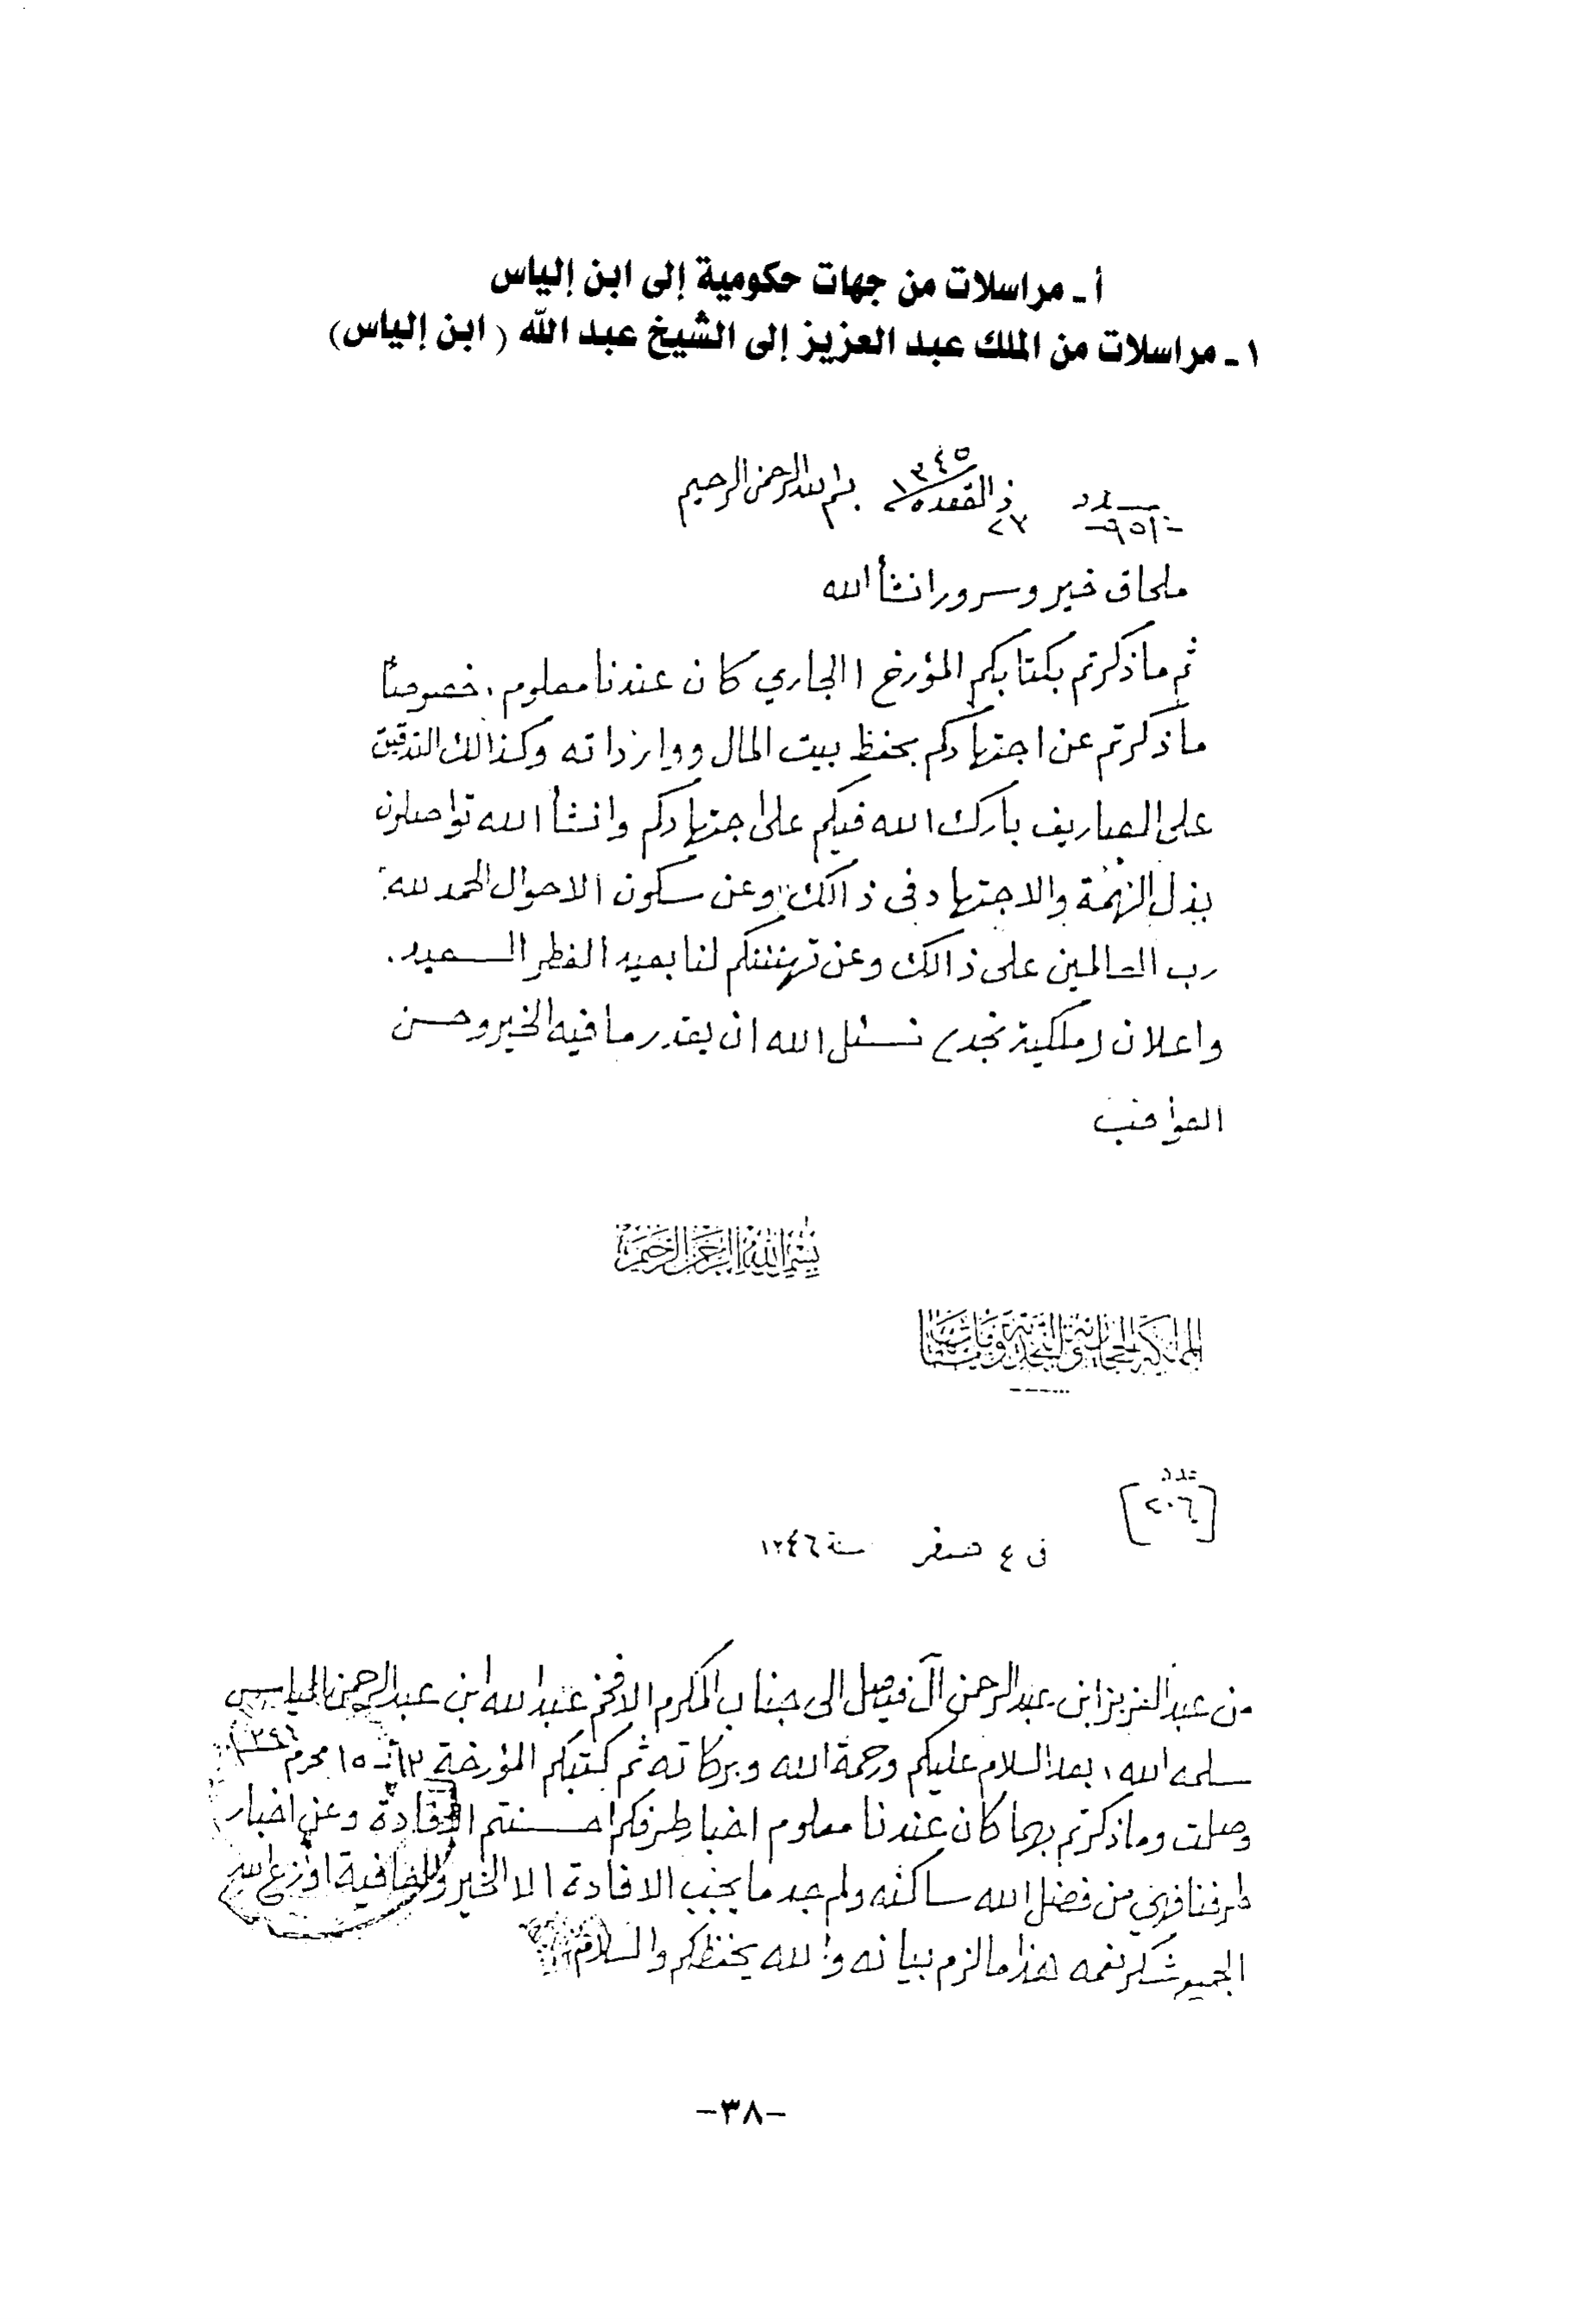 أ ـ مراسلات من جهات حكومية إلى ابن إلياس
١ ـ مراسلات من الملك عبد العزيز إلى الشيخ عبد الله ( ابن إلياس)
عدد ذالقعده ١٣٤٥ بسم الله الرحمن الرحيم
٢٣
ملحاق خير وسرور انشأ الله
ثم ما ذكرتم بكتابكم المؤرخ ١ الجاري كان عندنا معلوم . خصوصاً
ما ذكرتم عن اجتهادكم بحفظ بيت المال ووارداته وكذالك التدقيق
على المصاريف بارك الله فيكم على اجتهادكم وانشأ الله تواصلون
بذل الهمة والاجتهاد في ذالك وعن سكون الاحوال الحمد لله
رب العالمين على ذالك وعن تهنئتكم لنا بعيد الفطر السعيد .
واعلان (ملكية نجد) نسئل الله ان يقدر ما فيه الخير وحسن
العواقب
بسم الله الرحمن الرحيم
المملكة الحجازية النجدية وملحقاتها
عدد
[٢٠٦]
في ٤ صفر سنة ١٣٤٦
من عبد العزيز ابن عبد الرحمن آل فيصل الى جناب المكرم الافخم عبد الله ابن عبد الرحمن الياس
سلمه الله ، بعد السلام عليكم ورحمة الله وبركاته ثم كتبكم المؤرخة ١٣ ـ ١٥ محرم
وصلت وما ذكرتم بهما كان عندنا معلوم اخبار طرفكم احسنتم الافادة وعن اخبار
طرفنا فهي من فضل الله ساكنه ولم جد ما يجب الافادة الا الخير والعافية اوزع الله
الجميع شكر نعمه هذا ما لزم بيانه والله يحفظكم والسلام
-٣٨-